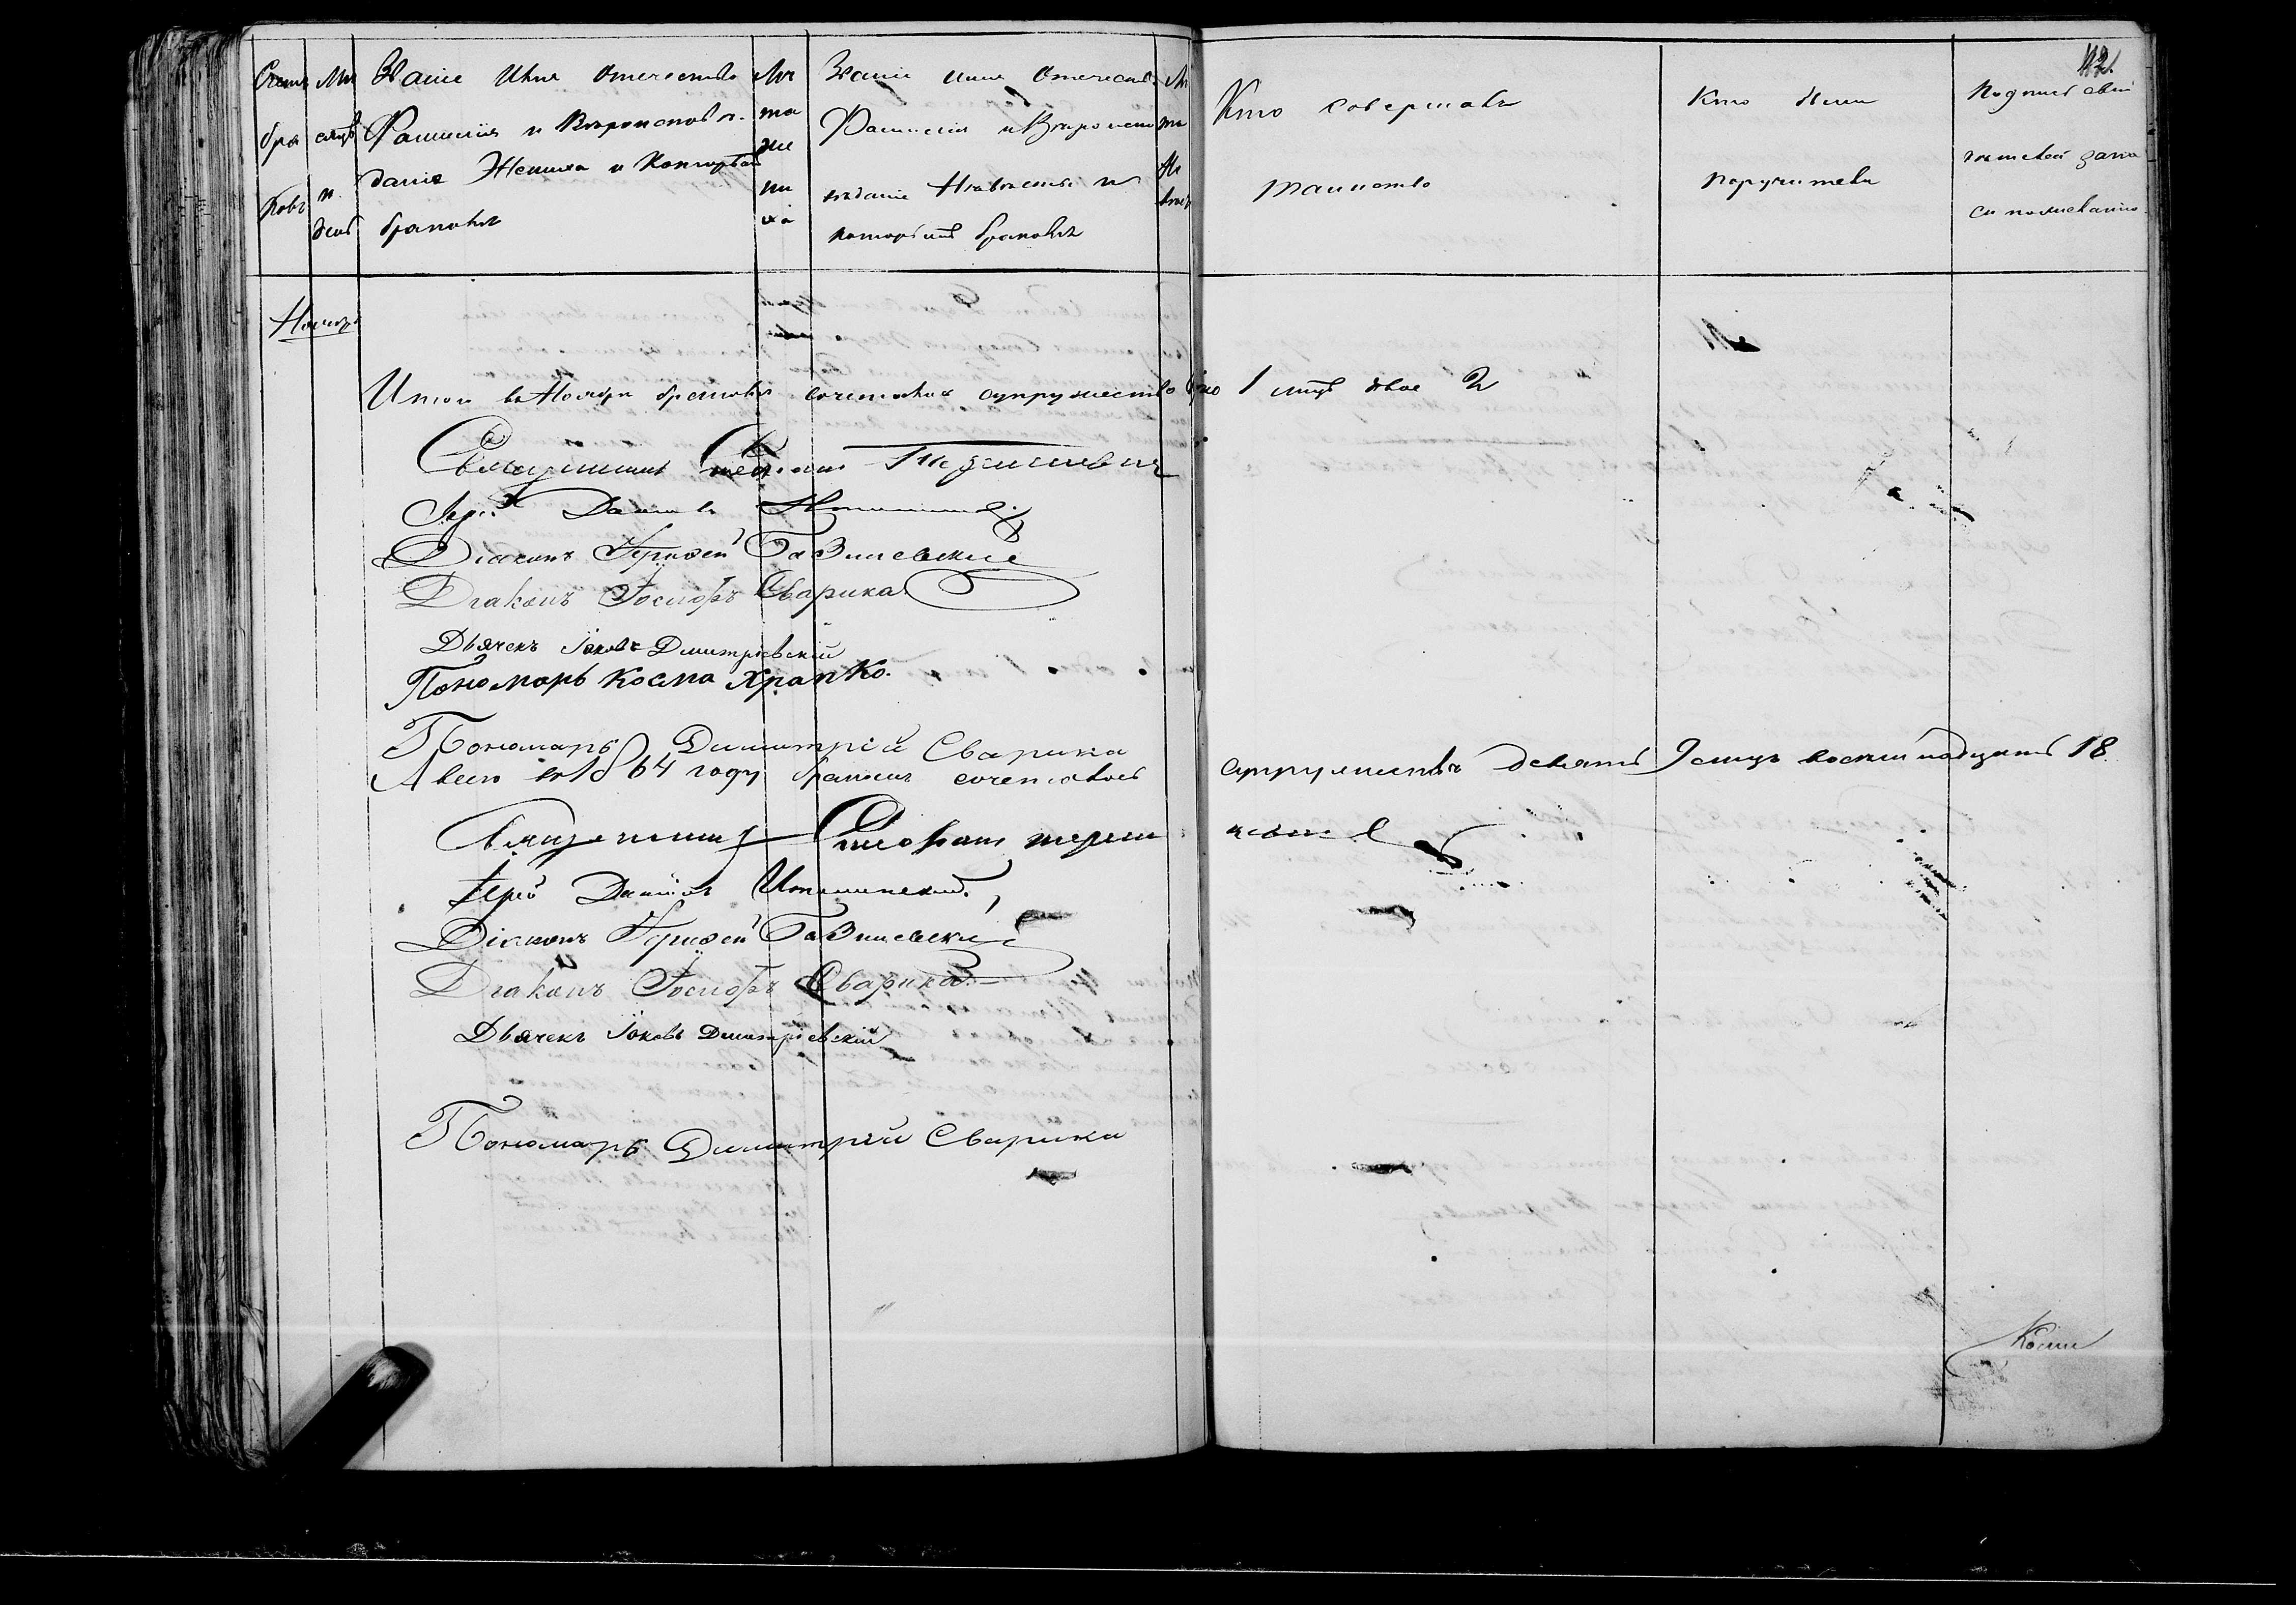 Счетъ бра ковъ
Мѣ сяцъ и день
Званіе Имя Отечество
Фамилія и Вѣроисповѣ.
даніе Жениха и Которымъ
бракомъ
Лѣ та же ни ха
Званіе имя Отечеств.
Фамилія и Вѣроиспо
вѣданіе Невѣсты и
которымъ бракомъ
Лѣ та Не вѣсты
Кто совершалъ
таинство
Кто были
поручители
Подпись свидѣ
записи по желанію
42.
Ноябрь
Итого въ Ноябрѣ бракомъ сочетовах супружество одно 1 лицъ двое 2
Священникъ
Іерей Даніилъ
Діаконъ
Діаконъ Іосифъ Сварика
Дьячекъ Іаковъ Дмитріевскій
Пономарь Косма Храпко.
Пономарь Димитрій Сварика
А всего въ 1864 году бракомъ сочетовалось супружествъ девять 9 лицъ восемнадцать 18.
Священникъ
Іерей Даніилъ
Діаконъ
Діаконъ Іосифъ Сварика
Дьячекъ Іаковъ Дмитріевскій
Пономарь Димитрій Сварика